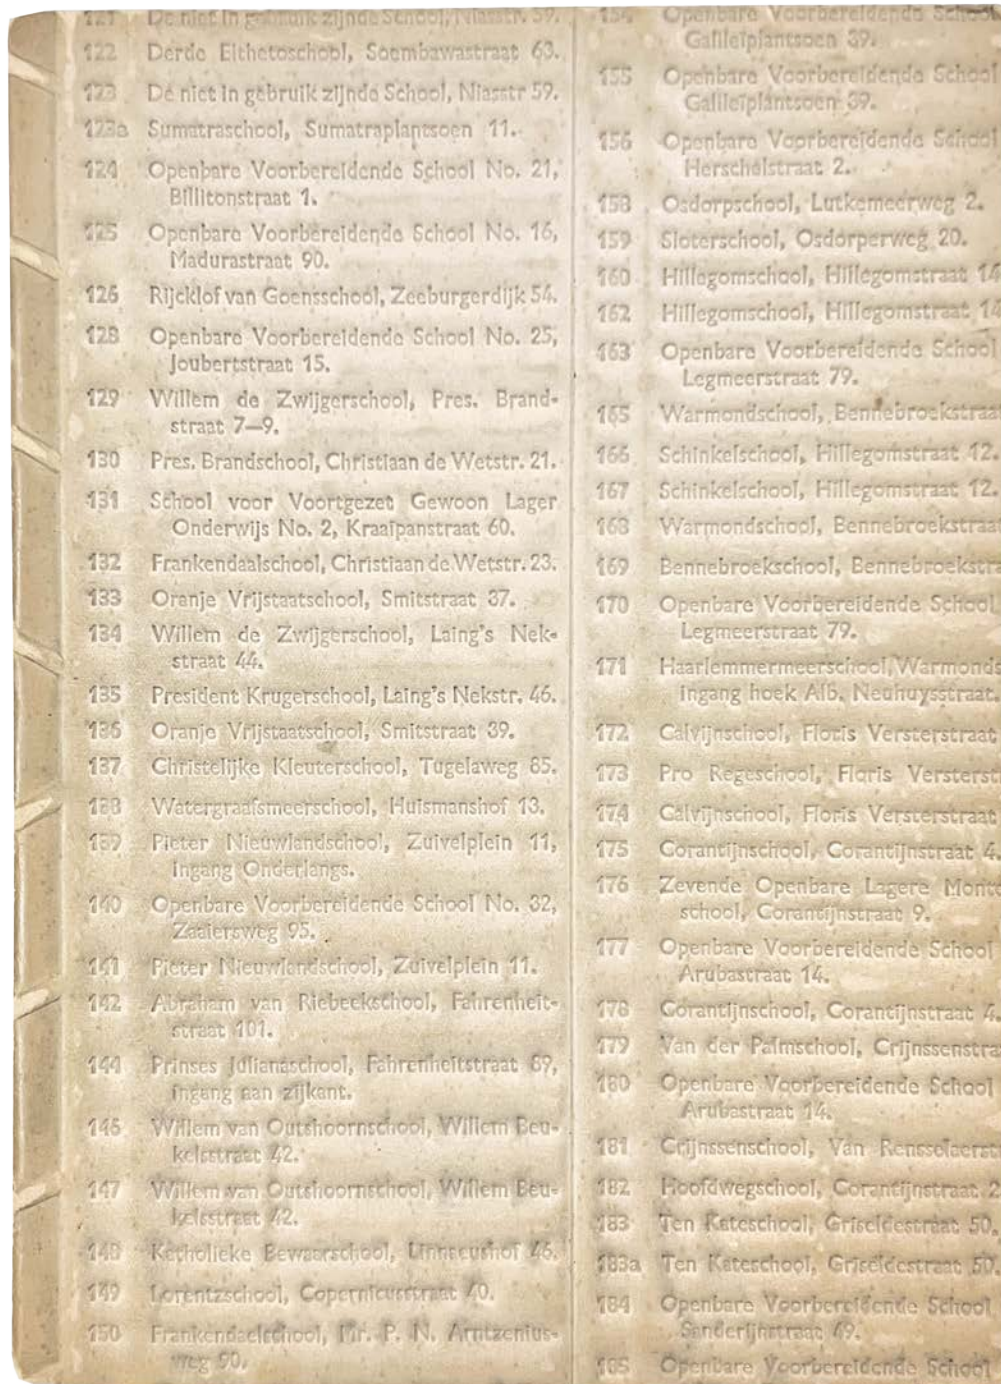 121 De niet in gebruik zijnde School, Niasstr. 59.
122 Derde Elthetoschool, Soembawastraat 63.
123 De niet in gebruik zijnde School, Niasstr 59.
123a Sumatraschool, Sumatraplantsoen 11.
124 Openbare Voorbereidende School No. 21,
Billitonstraat 1.
125 Openbare Voorbereidende School No. 16,
Madurastraat 90.
126 Rijcklof van Goensschool, Zeeburgerdijk 54.
128 Openbare Voorbereidende School No. 25,
Joubertstraat 15.
129 Willem de Zwijgerschool, Pres. Brand-
straat 7—9.
130 Pres. Brandschool, Christiaan de Wetstr. 21.
131 School voor Voortgezet Gewoon Lager
Onderwijs No. 2, Kraaipanstraat 60.
132 Frankendaalschool, Christiaan de Wetstr. 23.
133 Oranje Vrijstaatschool, Smitstraat 37.
134 Willem de Zwijgerschool, Laing's Nek-
straat 44.
135 President Krugerschool, Laing's Nekstr. 46.
136 Oranje Vrijstaatschool, Smitstraat 39.
137 Christelijke Kleuterschool, Tugelaweg 85.
138 Watergraafsmeerschool, Huismanshof 13.
139 Pieter Nieuwlandschool, Zuivelplein 11,
Ingang Onderlangs.
140 Openbare Voorbereidende School No. 32,
Zaaiersweg 95.
141 Pieter Nieuwlandschool, Zuivelplein 11.
142 Abraham van Riebeekschool, Fahrenheit-
straat 101.
144 Prinses Julianaschool, Fahrenheitstraat 89,
ingang aan zijkant.
146 Willem van Outshoornschool, Willem Beu-
kelsstraat 42.
147 Willem van Outshoornschool, Willem Beu-
kelsstraat 42.
148 Katholieke Bewaarschool, Linnaeushof 46.
149 Lorentzschool, Copernicusstraat 40.
150 Frankendaelschool, Mr. P. N. Arntzenius-
weg 90.
154 Openbare Voorbereidende School
Galileïplantsoen 39.
155 Openbare Voorbereidende School
Galileïplantsoen 39.
156 Openbare Voorbereidende School
Herschelstraat 2.
158 Osdorpschool, Lutkemeerweg 2.
159 Sloterschool, Osdorperweg 20.
160 Hillegomschool, Hillegomstraat 14
162 Hillegomschool, Hillegomstraat 14
163 Openbare Voorbereidende School
Legmeerstraat 79.
165 Warmondschool, Bennebroekstraat
166 Schinkelschool, Hillegomstraat 12.
167 Schinkelschool, Hillegomstraat 12.
168 Warmondschool, Bennebroekstraat
169 Bennebroekschool, Bennebroekstra
170 Openbare Voorbereidende School
Legmeerstraat 79.
171 Haarlemmermeerschool, Warmonds
ingang hoek Alb. Neuhuysstraat.
172 Calvijnschool, Floris Versterstraat
173 Pro Regeschool, Floris Versterst
174 Calvijnschool, Floris Versterstraat
175 Corantijnschool, Corantijnstraat 4.
176 Zevende Openbare Lagere Monte
school, Corantijnstraat 9.
177 Openbare Voorbereidende School
Arubastraat 14.
178 Corantijnschool, Corantijnstraat 4.
179 Van der Palmschool, Crijnssenstra
180 Openbare Voorbereidende School
Arubastraat 14.
181 Crijnssenschool, Van Rensselaerst
182 Hoofdwegschool, Corantijnstraat 2
183 Ten Kateschool, Griseldestraat 50.
183a Ten Kateschool, Griseldestraat 50.
184 Openbare Voorbereidende School
Sanderijnstraat 49.
185 Openbare Voorbereidende School